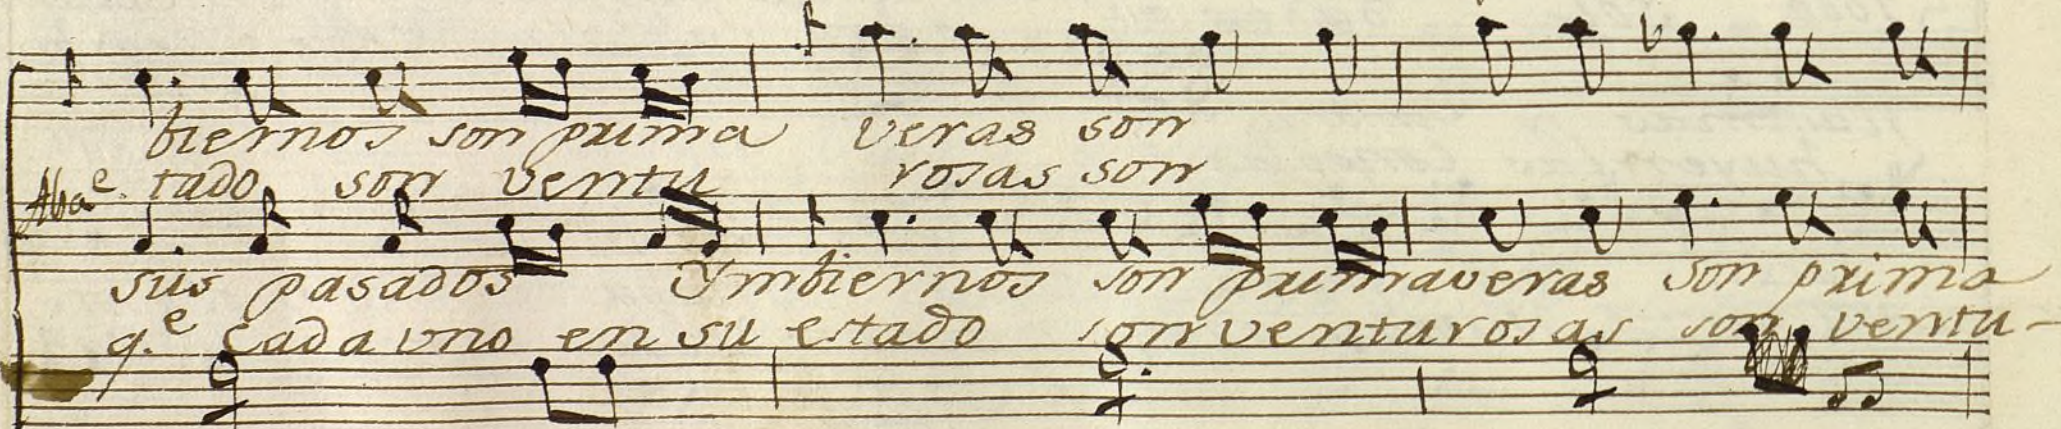 biernos son prima veras son
Abae. tado son ventu rosas son
sus pasados Ymbiernos son primaveras son prima
q.e Cada vno en su estado son venturosas son ventu-